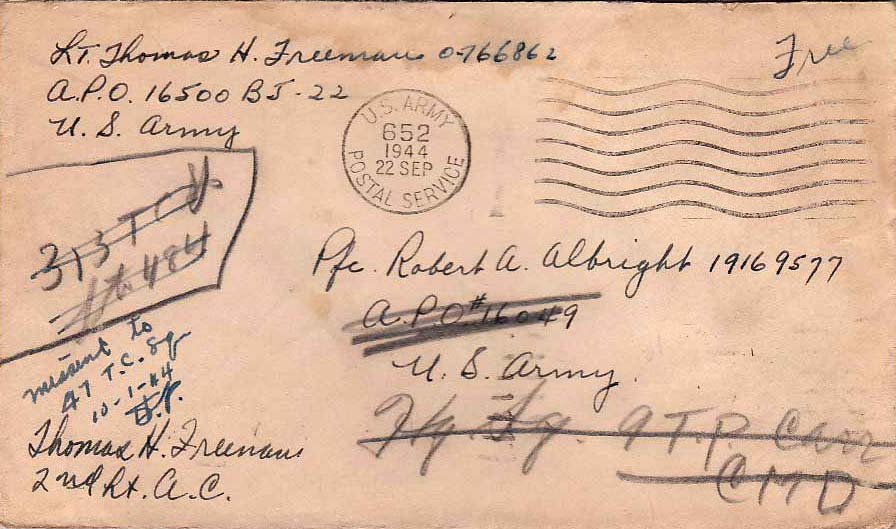 Lt. Thomas H. Freeman 0-766862
A.P.O. 16500 BJ-22
U. S. Army
Free
U.S. ARMY
652
1944
22 SEP
POSTAL SERVICE
313 T C
484
Pfc. Robert A. Albright 19169577
A.P.O. # 16049
U. S. Army.
Hq. Sq. 9 T.P. Carr
CMD
missent to
47 T.C. Sq
10-1-44
Thomas H. Freeman
2nd Lt. A.C.